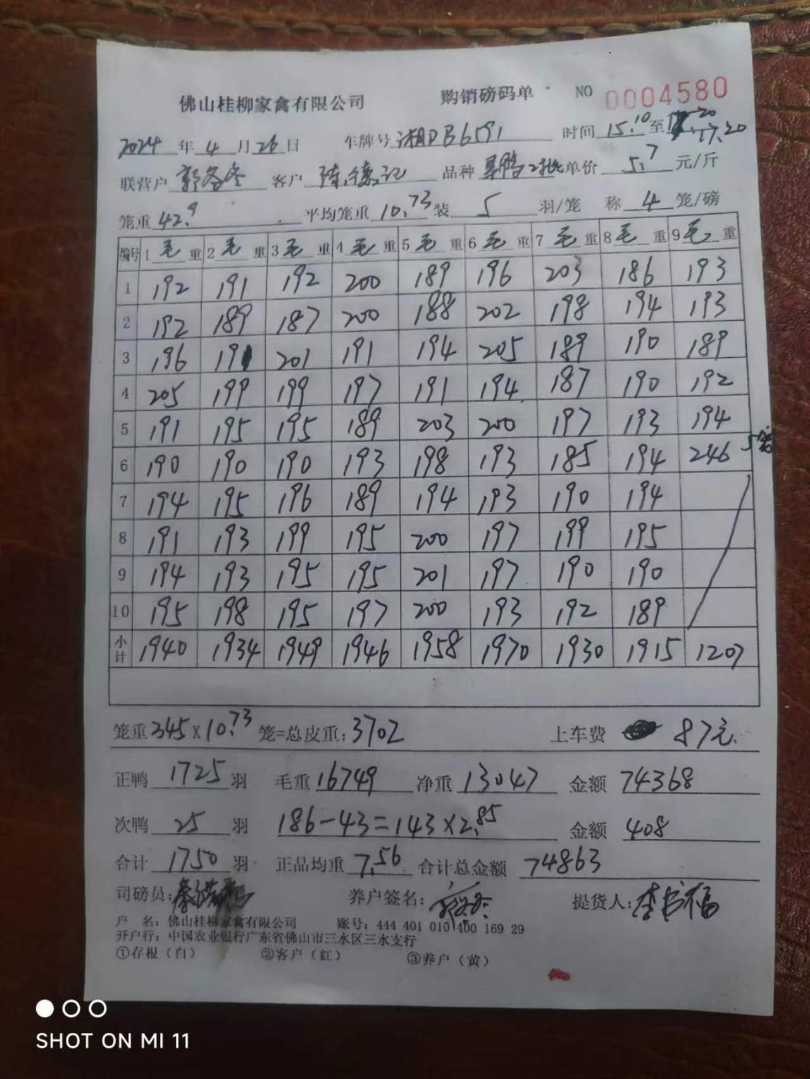 佛山桂柳家禽有限公司 购销磅码单 NO 0004580
2024 年 4 月 26 日 车牌号 湘DB6591 时间 15.10 至 17.20
联营户 客户 品种 单价 5.7 元/斤
笼重 42.9 平均笼重 10.73 装 5 羽/笼 称 4 笼/磅
编号 1 毛 重 2 毛 重 3 毛 重 4 毛 重 5 毛 重 6 毛 重 7 毛 重 8 毛 重 9 毛 重
1 192 191 192 200 189 196 203 186 193
2 192 189 187 200 188 202 198 194 193
3 196 191 201 191 194 205 189 190 189
4 205 199 199 197 191 194 187 190 192
5 191 195 195 189 203 200 197 193 194
6 190 190 190 193 198 193 185 194 246 5笼
7 194 195 196 189 194 193 190 194
8 191 193 199 195 200 197 199 195
9 194 193 195 195 201 197 190 190
10 195 198 195 197 200 193 192 189
小计 1940 1934 1949 1946 1958 1970 1930 1915 1207
笼重 345×10.73 笼=总皮重: 3702 上车费 87元
正鸭 1725 羽 毛重 16749 净重 13047 金额 74368
次鸭 25 羽 186-43=143×2.85 金额 408
合计 1750 羽 正品均重 7.56 合计总金额 74863
司磅员: 养户签名: 提货人:
户 名: 佛山桂柳家禽有限公司 账号: 444 401 010 400 169 29
开户行: 中国农业银行广东省佛山市三水区三水支行
①存根（白） ②客户（红） ③养户（黄）
SHOT ON MI 11